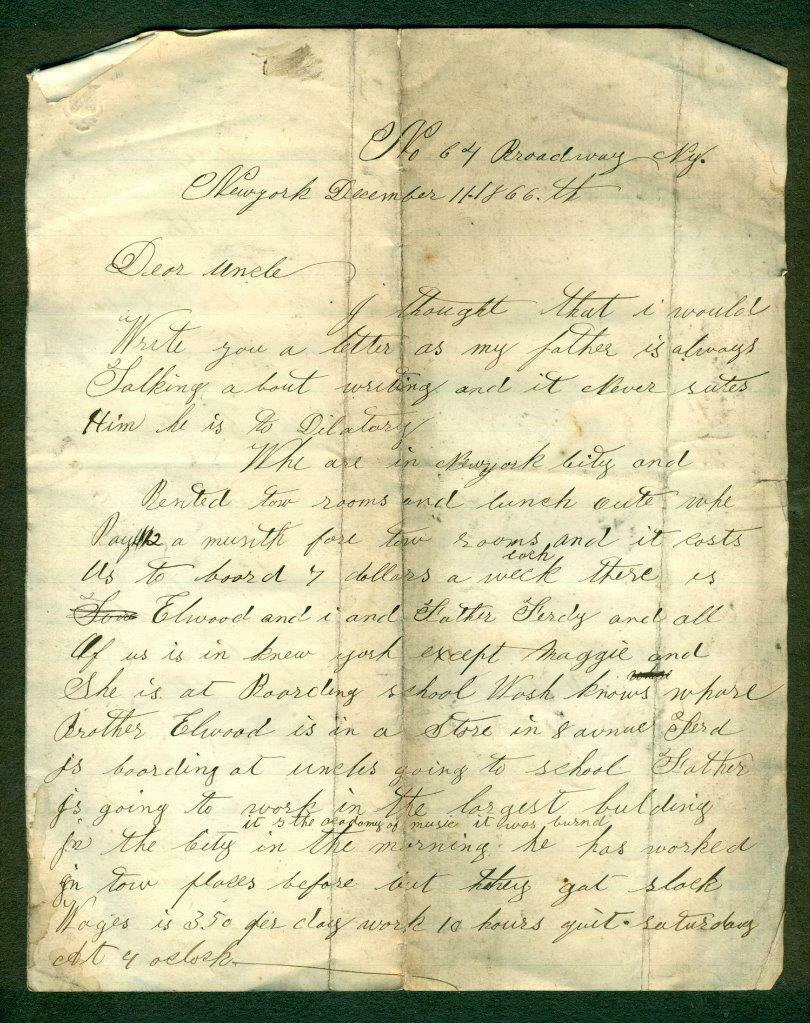 No 64 Broadway Ny.
Newyork December 11.1866.th
Dear Uncle
I thought that i would
Write you a letter as my father is always
Talking a bout writing and it Never sutes
Him he is to Dilatory
Whe are in Newyork City and
Rented tow rooms and lunch oute whe
Pay 12 a munth fore tow rooms and it costs
each
Us to board 7 dollars a week there is
Elwood and i and Father Ferdy and all
Of us is in knew york except Maggie and
She is at Boarding school Wash knows whare
Brother Elwood is in a Store in 8 avnue Ferd
Is boarding at uncles going to school Father
Is going to work in the largest bulding
it is the academy of music it was burnd
In the City in the morning he has worked
In tow places before but they got slack
Wages is 3.50 per day work 10 hours quit saturday
At 4 oclock